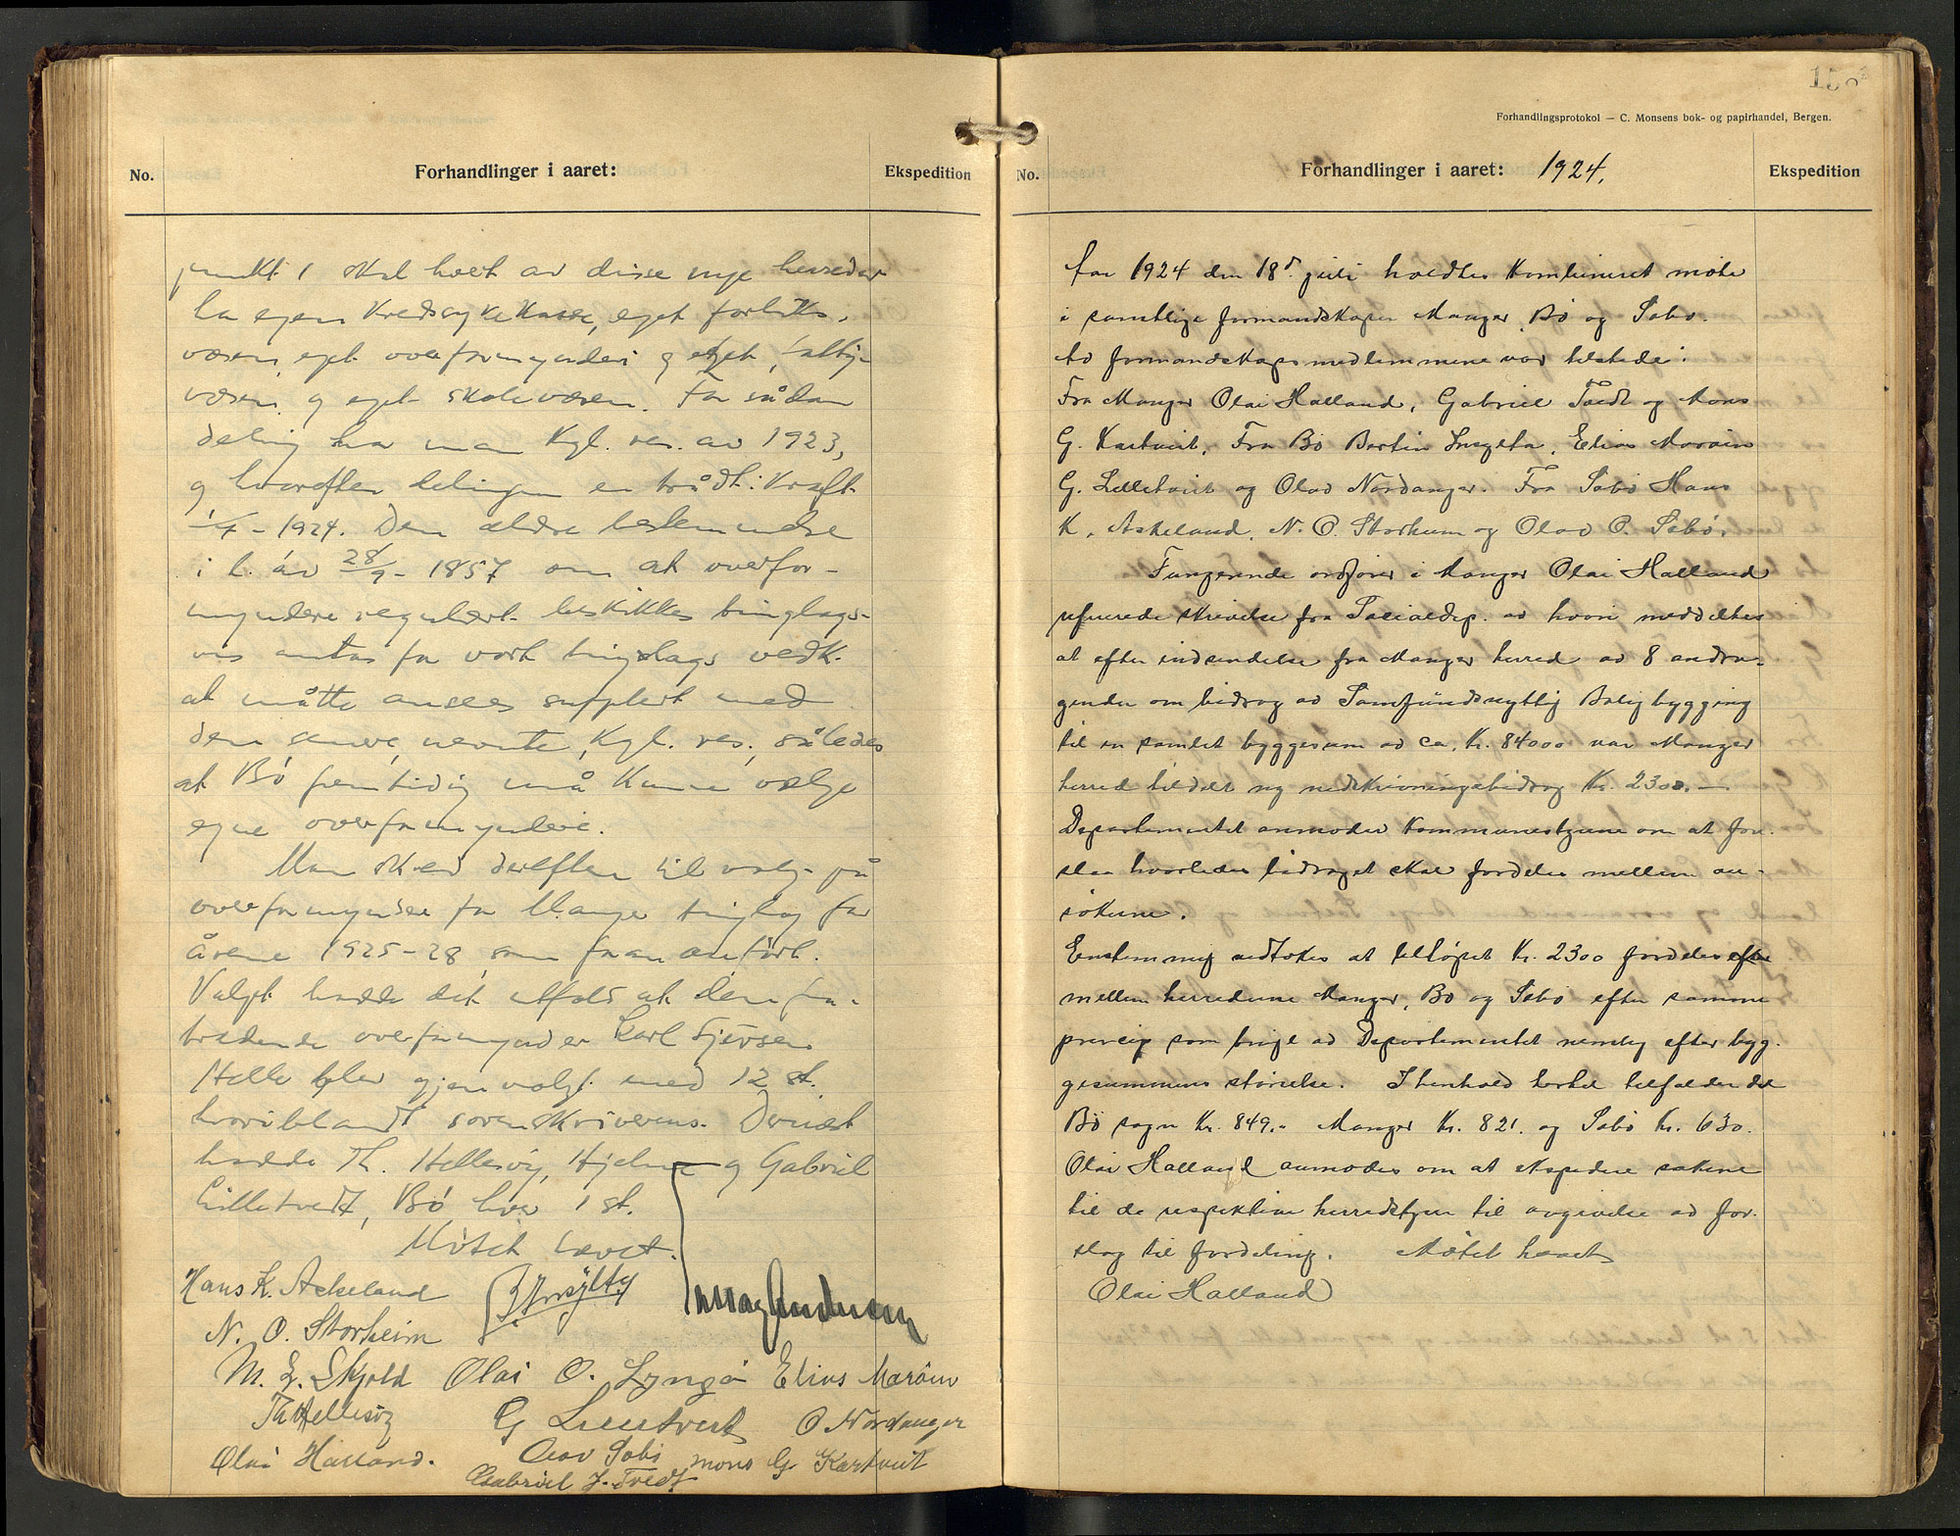 No.
Forhandlinger i aaret:
Ekspedition
punkt 1 skal hvert av disse nye herreder
ha egen Kredssykekasse, eget forliks-
væsen, eget overformynderi og eget fattig-
væsen og eget skolevæsen. For sådan
deling har man Kgl. res. av 1923,
og hvorefter delingen er trådt i Kraft
1/4 - 1924. Den ældre bestemmelse
i l. av 28/9 - 1857 om at overfor-
myndere regulært beskikkes tinglags-
vis antas for vort tinglags vedk.
at måtte ansees supplert med
den senere nevnte Kgl. res., således
at Bö fremtidig må kunne vælge
egne overformyndere.
Man skred derefter til valg på
overformynder for Manger tinglag for
årene 1925-28 som foran anført.
Valget hadde det utfald at den fra-
trædende overformynder Karl
Helle blev gjenvalgt med 12 st.
hvoriblandt sorenskriverens. Dernæst
hadde Th. Hellesöy, Hjelme og Gabriel
Lilletvedt, Bö hver 1 st.
Mötet hævet.
Hans K. Askeland
N. O. Storheim
M. Skjold Olai O. Lyngö Elias Maröen
Th Hellesöy G Lilletvedt O Nordanger
Olai Halland. Olav Sæbö Mons G. Kartveit
Gabriel J. Tvedt
Forhandlingsprotokol — C. Monsens bok- og papirhandel, Bergen.
No.
Forhandlinger i aaret: 1924.
Ekspedition
Aar 1924 den 18de juli holdtes Kombineret möte
i samtlige formandskaper Manger, Bö og Sæbö.
Av formandskapsmedlemmene var tilstede:
Fra Manger Olai Halland, Gabriel Tvedt og Mons
G. Kartveit, Fra Bö Bertin Insylta, Elias Maröen
G. Lilletveit og Olav Nordanger. Fra Sæbö Hans
K. Askeland, N. O. Storheim og Olav O. Sæbö.
Fungerende ordförer i Manger Olai Halland
refererede skrivelse fra Socialdep. av hvori meddeltes
at efter indsendelse fra Manger herred av 8 andra-
gender om bidrag av Samfundsnyttig Boligbygging
til en samlet byggesum av ca. Kr. 84000 var Manger
herred tildelt ny nedskrivningsbidrag Kr. 2300.—
Departementet anmoder Kommunestyrene om at for-
slaa hvorledes bidraget skal fordeles mellem an-
sökerne.
Enstemmig vedtokes at belöpet Kr. 2300 fordeles efter
mellem herrederne Manger, Bö og Sæbö efter samme
princip som brugt av Departementet nemlig efter byg-
gesummens störrelse. I henhold hertil tilfalder det
Bö sogn Kr. 849.- Manger Kr. 821. og Sæbö Kr. 630.
Olai Halland anmodes om at ekspedere sakene
til de respektive herredstyrer til avgivelse av for-
slag til fordeling. Mötet hævet
Olai Halland